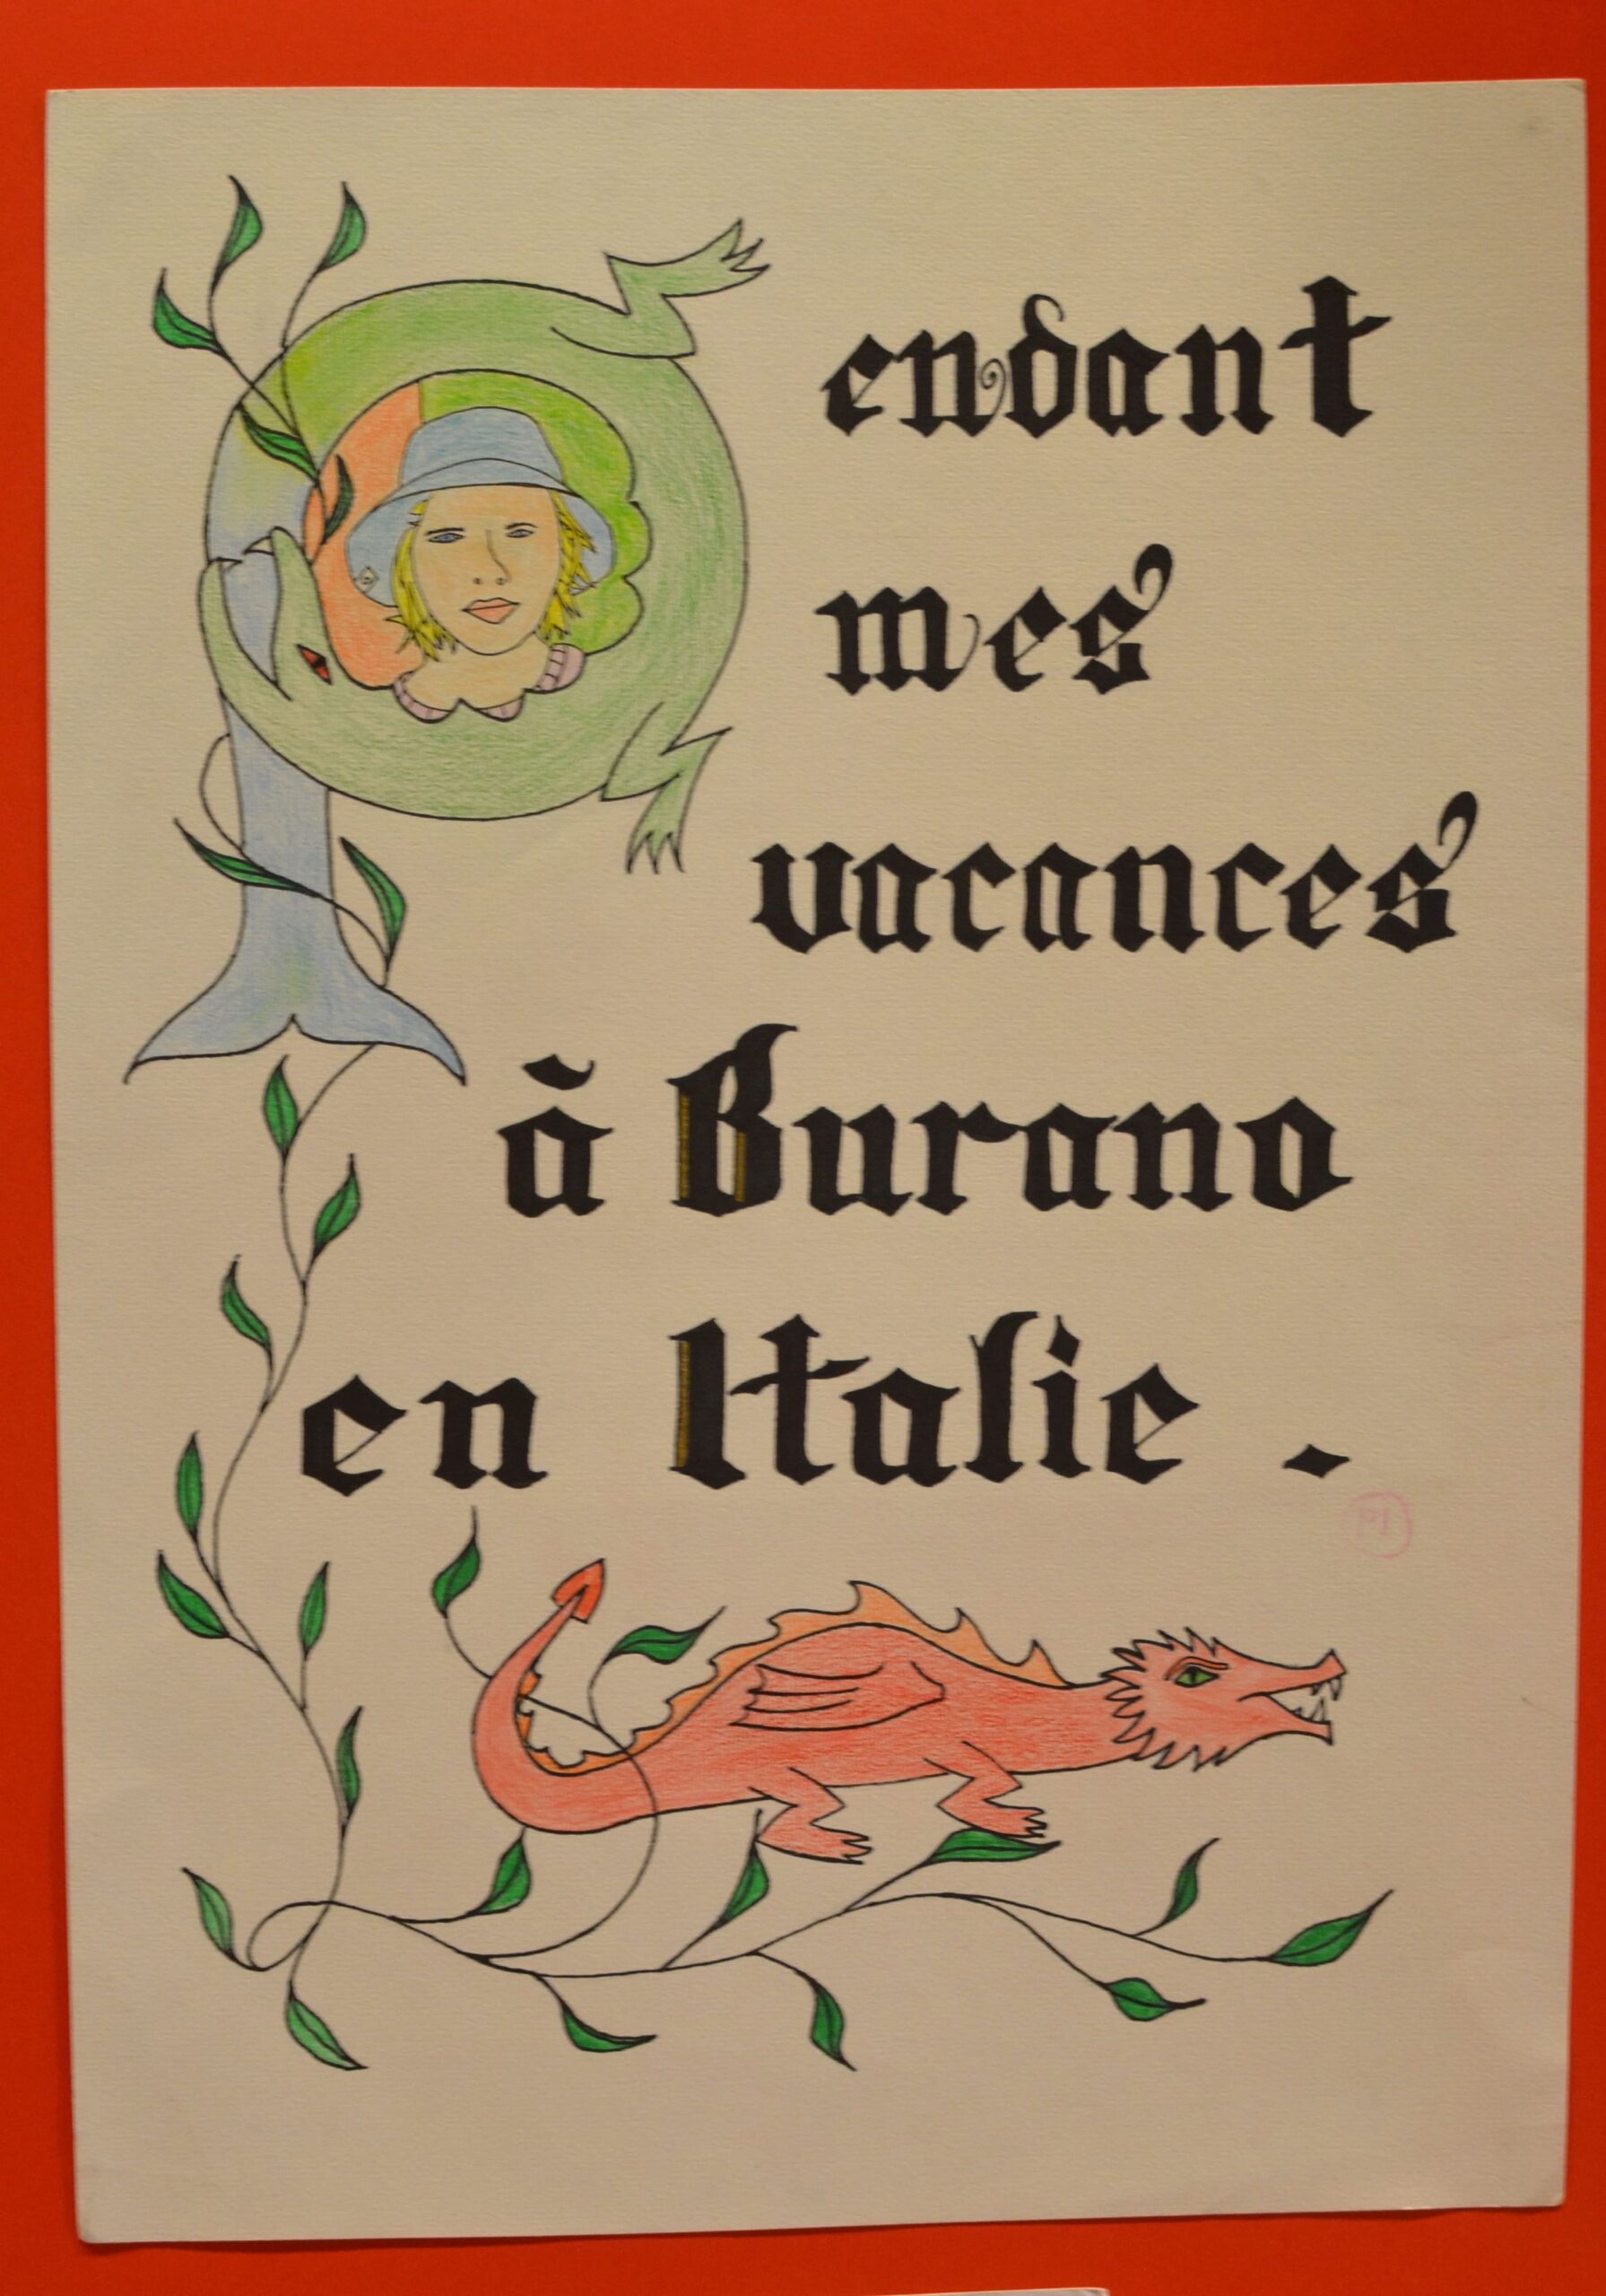 Pendant
mes
vacances
à Burano
en Italie.